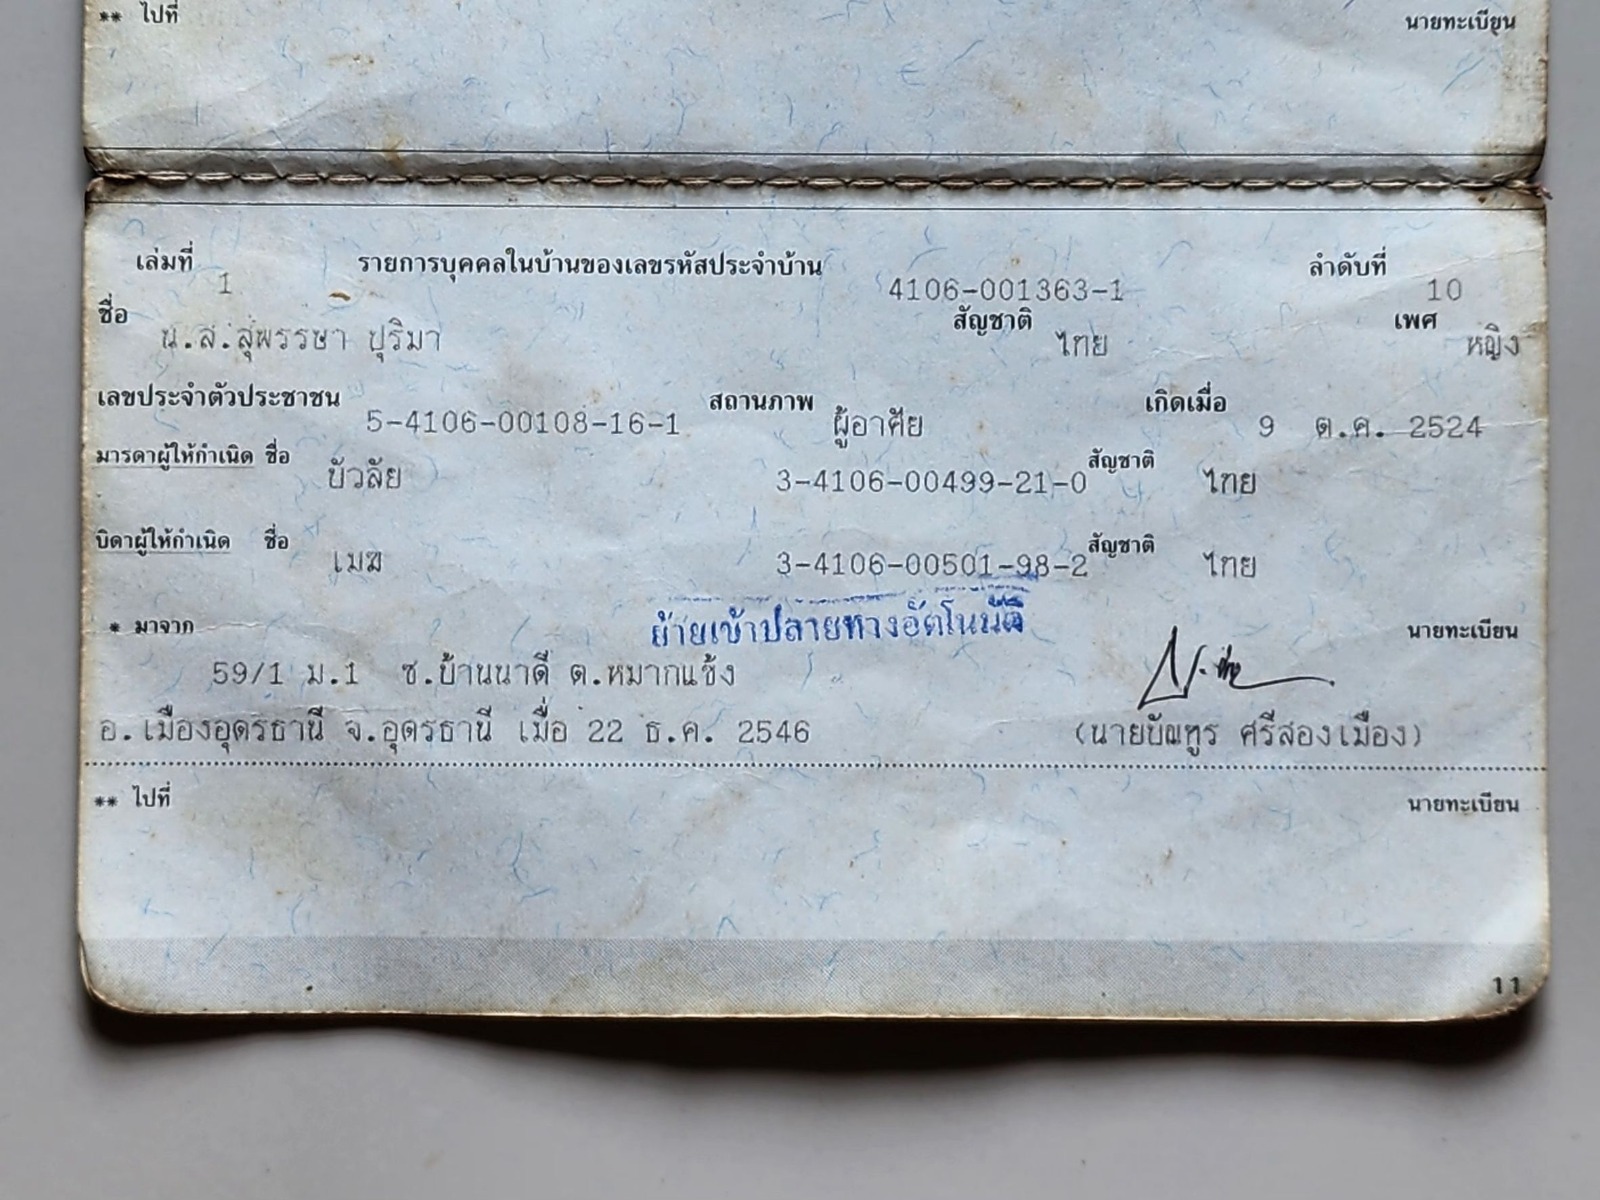 ** ไปที่ นายทะเบียน
เล่มที่ 1 รายการบุคคลในบ้านของเลขรหัสประจำบ้าน 4106-001363-1 ลำดับที่ 10
ชื่อ น.ส.สุพรรษา ปุริมา สัญชาติ ไทย เพศ หญิง
เลขประจำตัวประชาชน 5-4106-00108-16-1 สถานภาพ ผู้อาศัย เกิดเมื่อ 9 ต.ค. 2524
มารดาผู้ให้กำเนิด ชื่อ บัวลัย 3-4106-00499-21-0 สัญชาติ ไทย
บิดาผู้ให้กำเนิด ชื่อ เมฆ 3-4106-00501-98-2 สัญชาติ ไทย
ย้ายเข้าปลายทางอัตโนมัติ
* มาจาก นายทะเบียน
59/1 ม.1 ซ.บ้านนาดี ต.หมากแข้ง
อ.เมืองอุดรธานี จ.อุดรธานี เมื่อ 22 ธ.ค. 2546 (นายบัณฑูร ศรีสองเมือง)
** ไปที่ นายทะเบียน
11